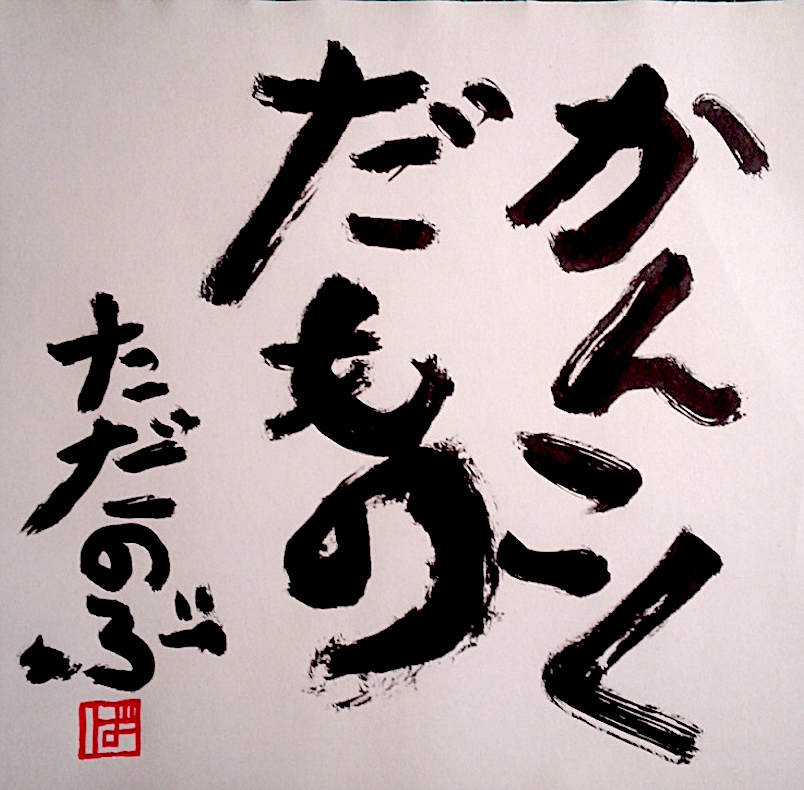 かんこく
だもの
ただのぶ